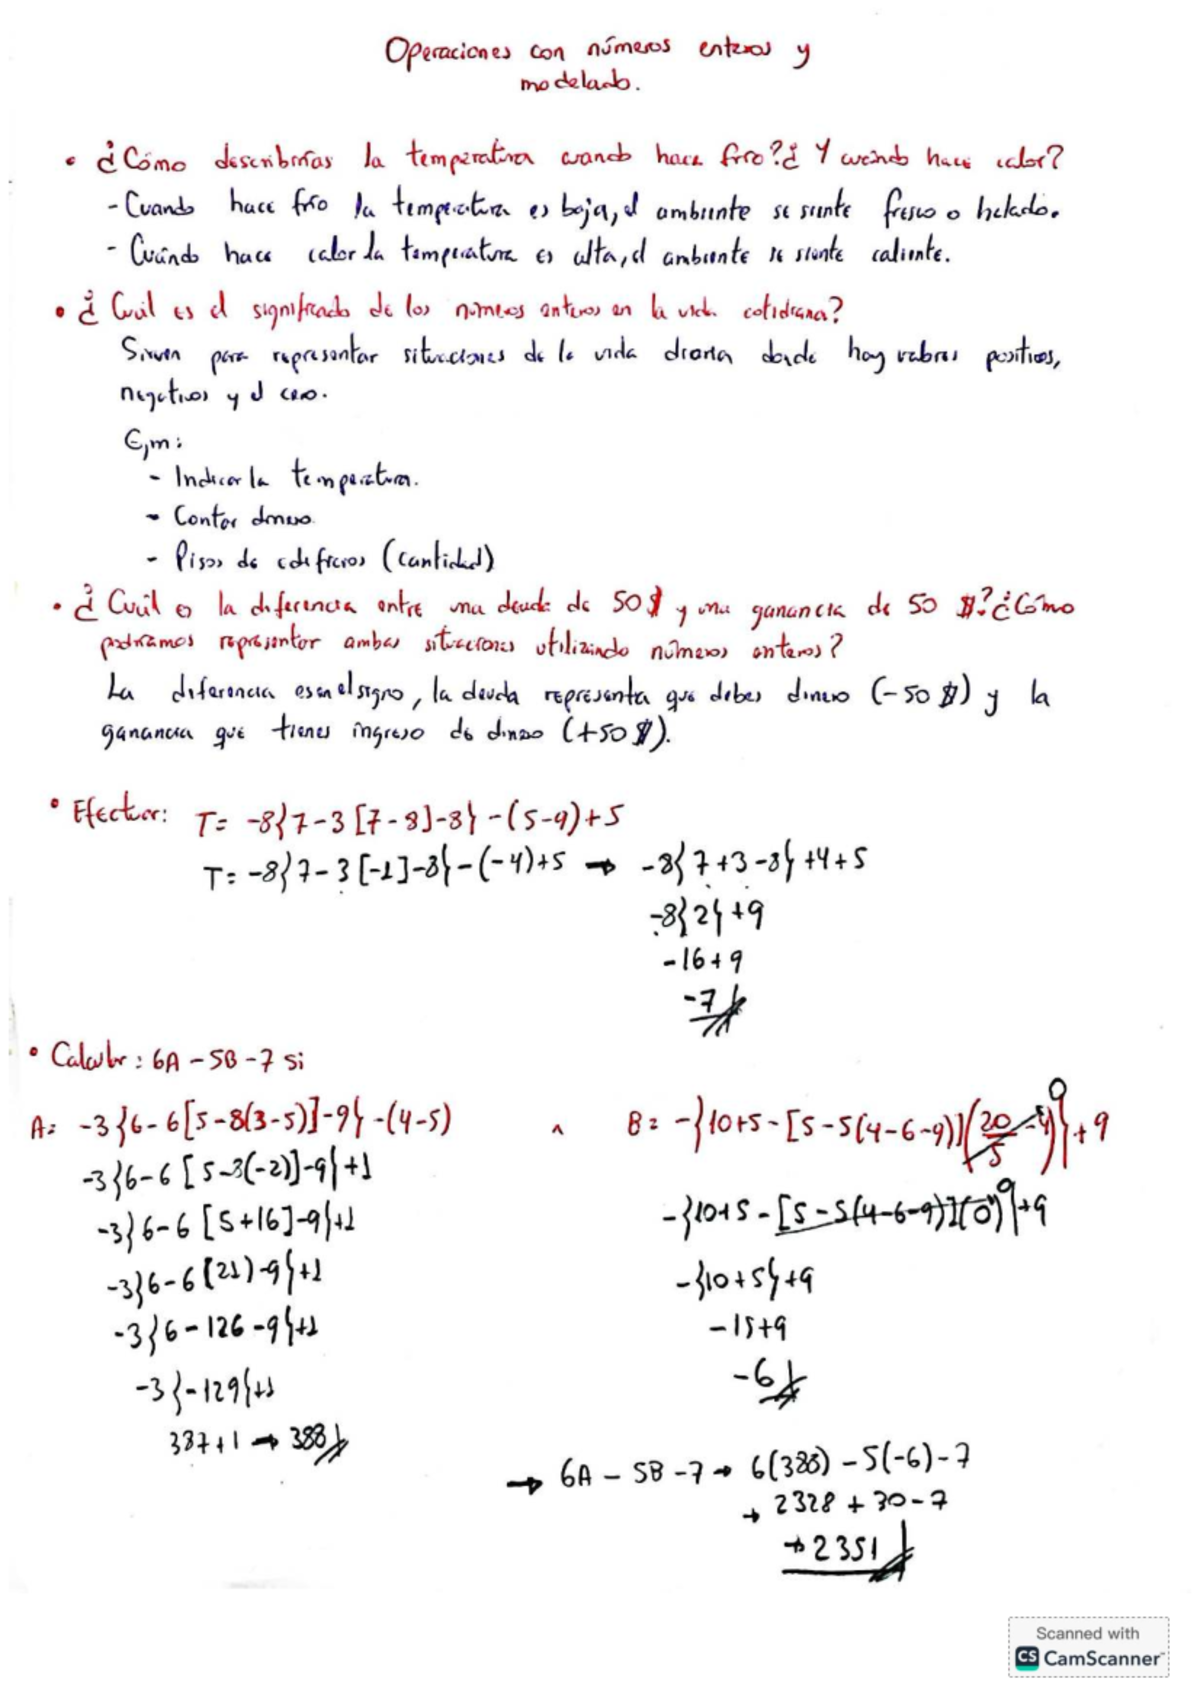 Operaciones con números enteros y
modelado.
• ¿Cómo describirías la temperatura cuando hace frío? ¿Y cuándo hace calor?
- Cuando hace frío la temperatura es baja, el ambiente se siente fresco o helado.
- Cuándo hace calor la temperatura es alta, el ambiente se siente caliente.
• ¿Cuál es el significado de los números enteros en la vida cotidiana?
Sirven para representar situaciones de la vida diaria donde hay valores positivos,
negativos y el cero.
Ejm:
- Indicar la temperatura.
- Contar dinero.
- Pisos de edificios (cantidad)
• ¿Cuál es la diferencia entre una deuda de 50 $ y una ganancia de 50 $? ¿Cómo
podríamos representar ambas situaciones utilizando números enteros?
La diferencia es en el signo, la deuda representa que debes dinero (-50 $) y la
ganancia que tienes ingreso de dinero (+50 $).
• Efectuar: T= -8{7-3[7-8]-8}-(5-9)+5
T= -8{7-3[-1]-8}-(-4)+5 → -8{7+3-8}+4+5
-8{2}+9
-16+9
-7
• Calcular: 6A-5B-7 si
A= -3{6-6[5-8(3-5)]-9}-(4-5) ^ B= -{10+5-[5-5(4-6-9)](20/5-4)0}+9
-3{6-6[5-8(-2)]-9}+1
-3{6-6[5+16]-9}+1
-3{6-6(21)-9}+1
-3{6-126-9}+1
-3{-129}+1
387+1 → 388
-{10+5-[5-5(4-6-9)](0)0}+9
-{10+5}+9
-15+9
-6
→ 6A-5B-7 → 6(388)-5(-6)-7
→ 2328+30-7
→ 2351
Scanned with
CS CamScanner